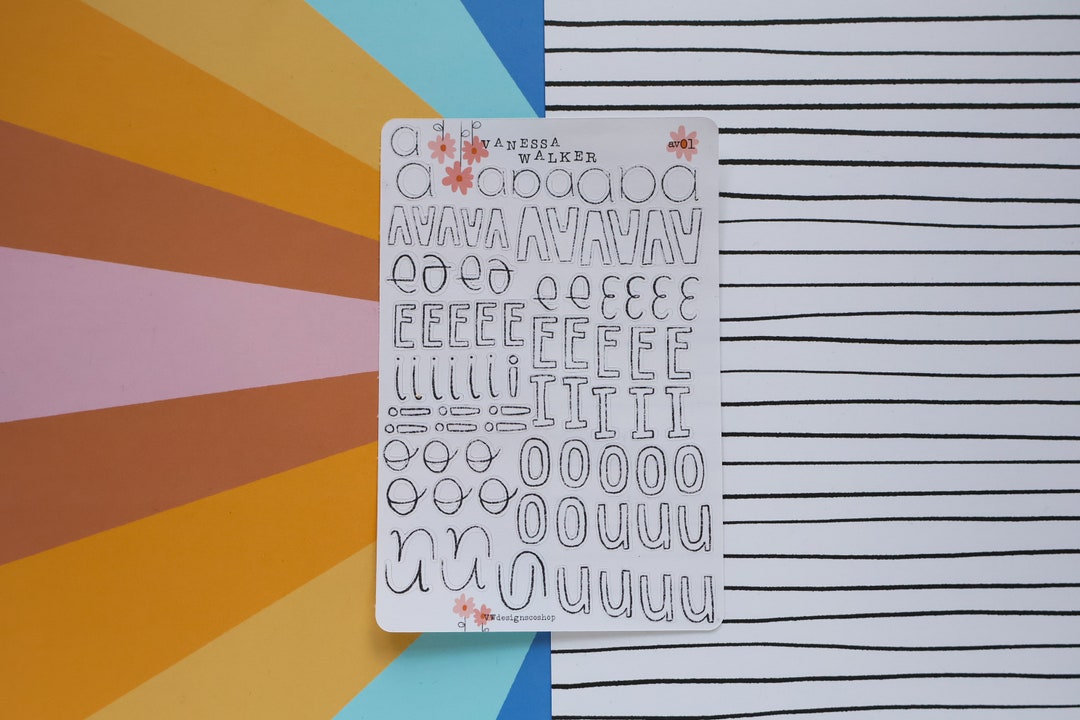 a VANESSA av01
WALKER
a a a a a a a a
A A A A A A A A A A A
e e e e e e e e e e
E E E E E E E E E E
i i i i i i i I I I I I
i i i
i i i
o o o O O O O O
o o o O O u u u
u u u u u u u u
VWdesignscoshop